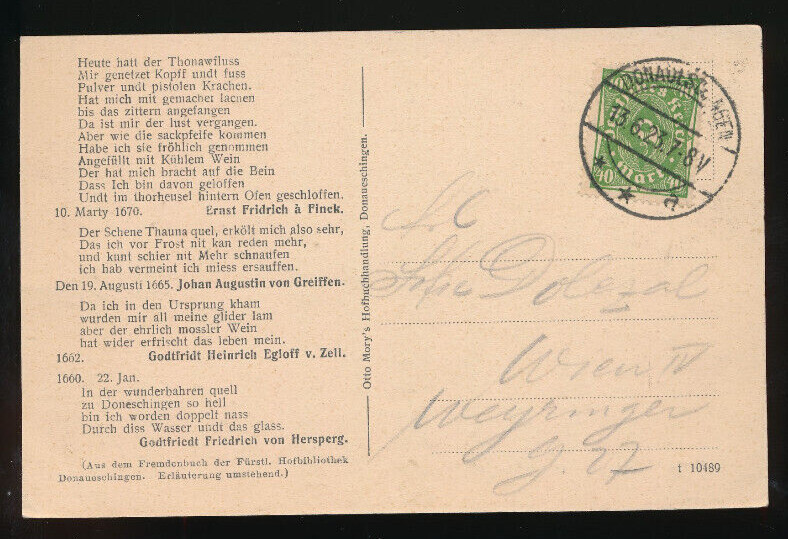 Heute hatt der Thonawfluss
Mir genetzet Kopff undt fuss
Pulver undt pistolen Krachen.
Hat mich mit gemachet lachen
bis das zittern angefangen
Da ist mir der lust vergangen.
Aber wie die sackpfeife kommen
Habe ich sie fröhlich genommen
Angefüllt mit Kühlem Wein
Der hat mich bracht auf die Bein
Dass Ich bin davon geloffen
Undt im thorheusel hintern Ofen geschloffen.
10. Marty 1670. Ernst Fridrich à Finck.
Der Schene Thauna quel, erkölt mich also sehr,
Das ich vor Frost nit kan reden mehr,
und kunt schier nit Mehr schnaufen
ich hab vermeint ich miess ersauffen.
Den 19. Augusti 1665. Johan Augustin von Greiffen.
Da ich in den Ursprung kham
wurden mir all meine glider lam
aber der ehrlich mossler Wein
hat wider erfrischt das leben mein.
1662. Godtfridt Heinrich Egloff v. Zell.
1660. 22. Jan.
In der wunderbahren quell
zu Doneschingen so hell
bin ich worden doppelt nass
Durch diss Wasser undt das glass.
Godtfriedt Friedrich von Hersperg.
(Aus dem Fremdenbuch der Fürstl. Hofbibliothek
Donaueschingen. Erläuterung umstehend.)
Otto Mory's Hofbuchhandlung, Donaueschingen.
DONAUESCHINGEN
13.6.23. 7-8V
* * a
40 Mark 40
Dolezal
Wien IV
Weyringer
g. 27
t 10489